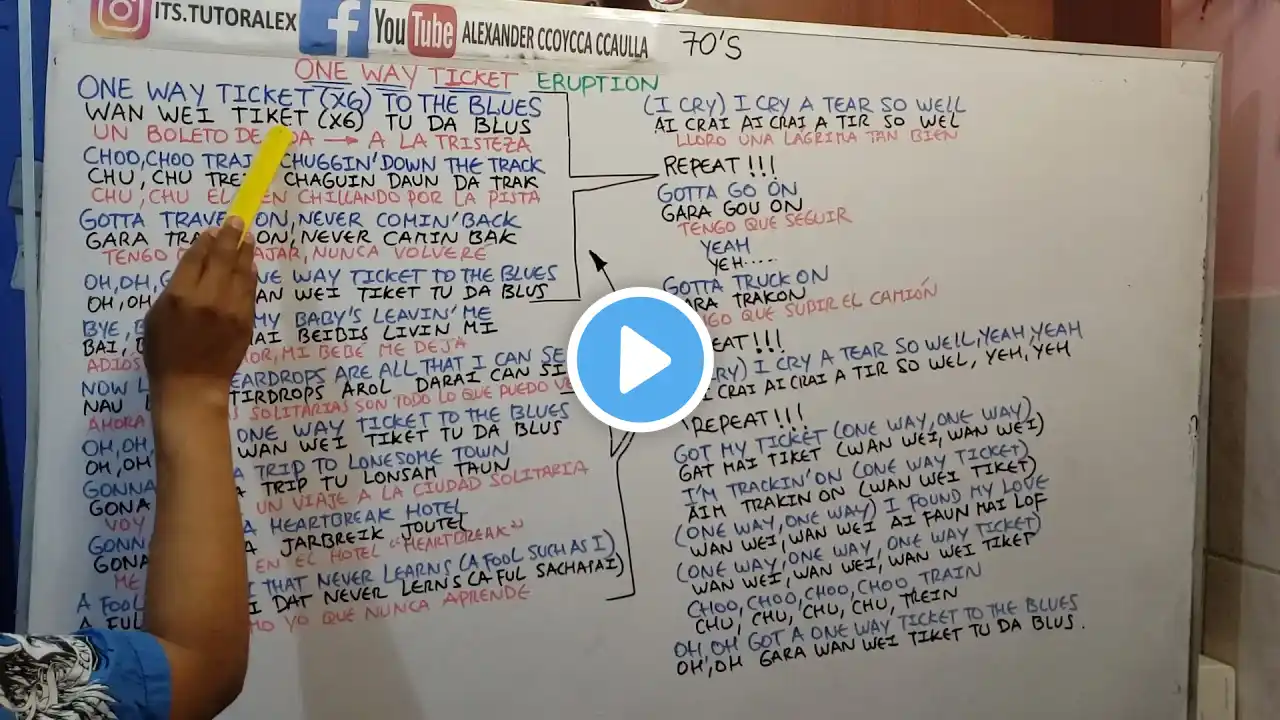 ITS.TUTORALEX
You Tube ALEXANDER CCOYCCA CCAULLA
70'S
ONE WAY TICKET ERUPTION
ONE WAY TICKET (X6) TO THE BLUES
WAN WEI TIKET (X6) TU DA BLUS
UN BOLETO DE → A LA TRISTEZA
CHOO, CHOO CHUGGIN' DOWN THE TRACK
CHU, CHU CHAGUIN DAUN DA TRAK
CHU, CHU CHILLANDO POR LA PISTA
GOTTA ON, NEVER COMIN' BACK
GARA ON, NEVER CAMIN BAK
TENGO NUNCA VOLVERE
OH, OH, WAY TICKET TO THE BLUES
OH, OH WAN WEI TIKET TU DA BLUS
BYE, MY BABY'S LEAVIN' ME
BAI, MAI BEIBIS LIVIN MI
ADIOS MI BEBE ME DEJA
NOW ARE ALL THAT I CAN
NAU TIRDROPS AROL DARAI CAN SI
AHORA SOLITARIAS SON TODO LO QUE PUEDO
OH, OH, ONE WAY TICKET TO THE BLUES
OH, OH WAN WEI TIKET TU DA BLUS
GONNA A TRIP TO LONESOME TOWN
GONA A TRIP TU LONSAM TAUN
VOY UN VIAJE A LA CIUDAD SOLITARIA
A HEARTBREAK HOTEL
GONA A JARBREIK JOUTEL
ME EN EL HOTEL "HEARTBREAK"
A FOOL I THAT NEVER LEARNS (A FOOL SUCH AS I)
A FUL I DAT NEVER LERNS (A FUL SACHASAI)
YO QUE NUNCA APRENDE
(I CRY) I CRY A TEAR SO WELL
AI CRAI AI CRAI A TIR SO WEL
LLORO UNA LAGRIMA TAN BIEN
REPEAT !!!
GOTTA GO ON
GARA GOU ON
TENGO QUE SEGUIR
YEAH
YEH.....
GOTTA TRUCK ON
TRAKON
QUE SUBIR EL CAMIÓN
I CRY A TEAR SO WELL, YEAH, YEAH
CRAI AI CRAI A TIR SO WEL, YEH, YEH
REPEAT !!!
GOT MY TICKET (ONE WAY, ONE WAY)
GAT MAI TIKET (WAN WEI, WAN WEI)
I'M TRACKIN' ON (ONE WAY TICKET)
AIM TRAKIN ON (WAN WEI TIKET)
(ONE WAY, ONE WAY) I FOUND MY LOVE
WAN WEI, WAN WEI AI FAUN MAI LOF
(ONE WAY, ONE WAY, ONE WAY TICKET)
WAN WEI, WAN WEI, WAN WEI TIKET
CHOO, CHOO, CHOO, CHOO, TRAIN
CHU, CHU, CHU, CHU, TREIN
OH, OH GOT A ONE WAY TICKET TO THE BLUES
OH, OH GARA WAN WEI TIKET TU DA BLUS.